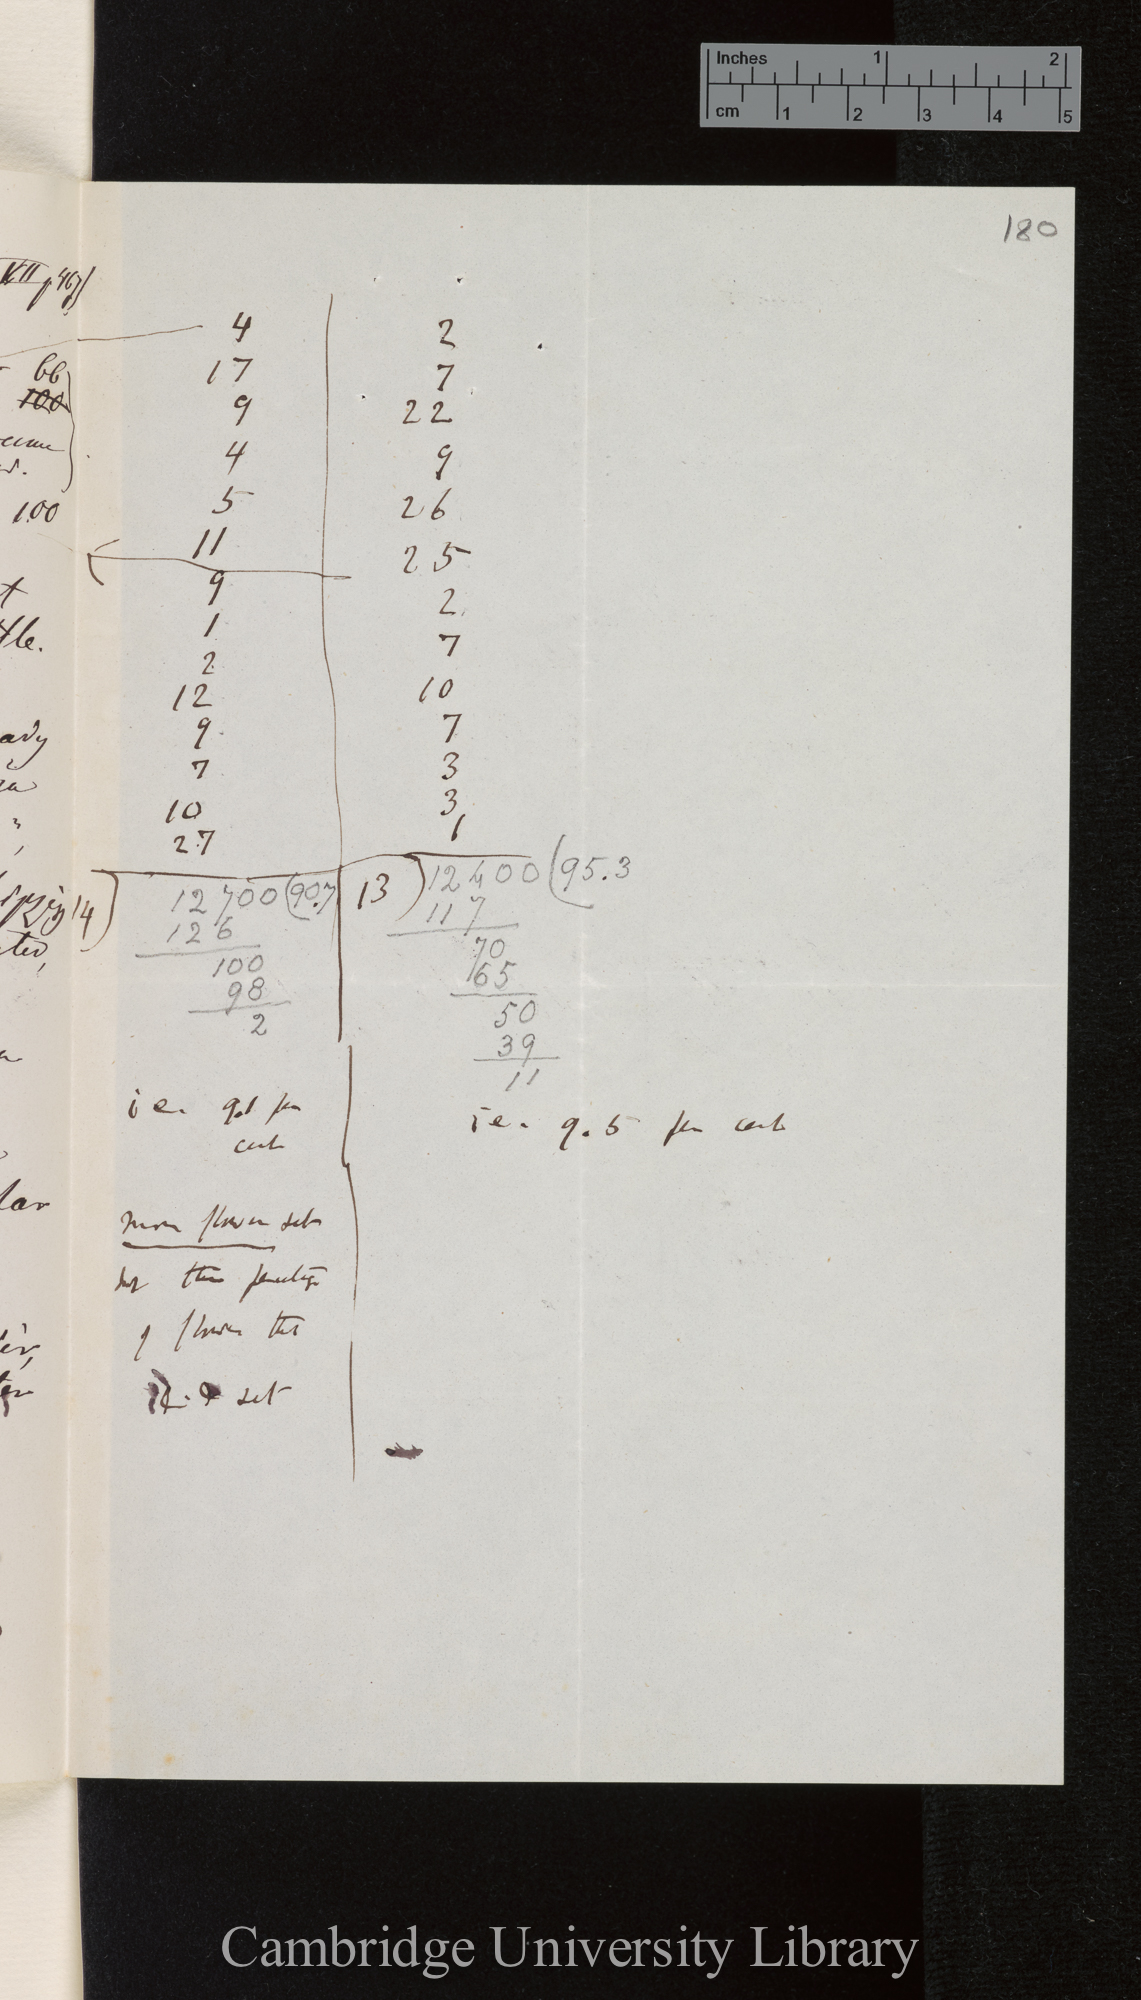 Inches 1 2
cm 1 2 3 4 5
180
4
17
9
4
5
11
9
1
2
12
9
7
10
27
14) 12700 (90.7
126
100
98
2
i.e. 9.1 per
cent
more flowers set
but the
of flowers that
set
2
7
22
9
26
25
2
7
10
7
3
3
1
13) 12400 (95.3
117
70
65
50
39
11
i.e. 9.5 per cent
bb
100
100
Cambridge University Library